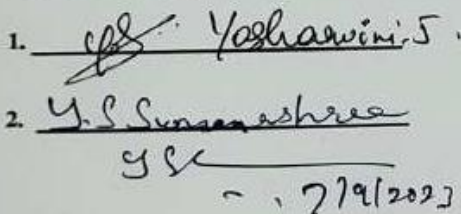 1. Yashaswini.J.
2. Y.S Sumanashree
YSS
7/9/2023